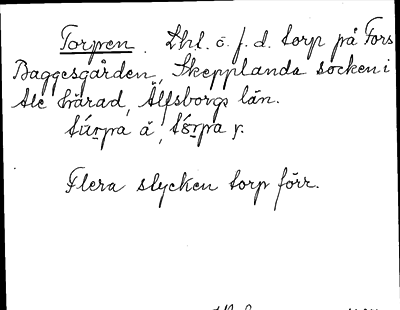 Torpen. Lhl. o. f. d. torp på Fors
Baggesgården, Skepplanda socken i
Ale härad, Älfsborgs län.
tórpa ä, tórpa y.
Flera stycken torp förr.